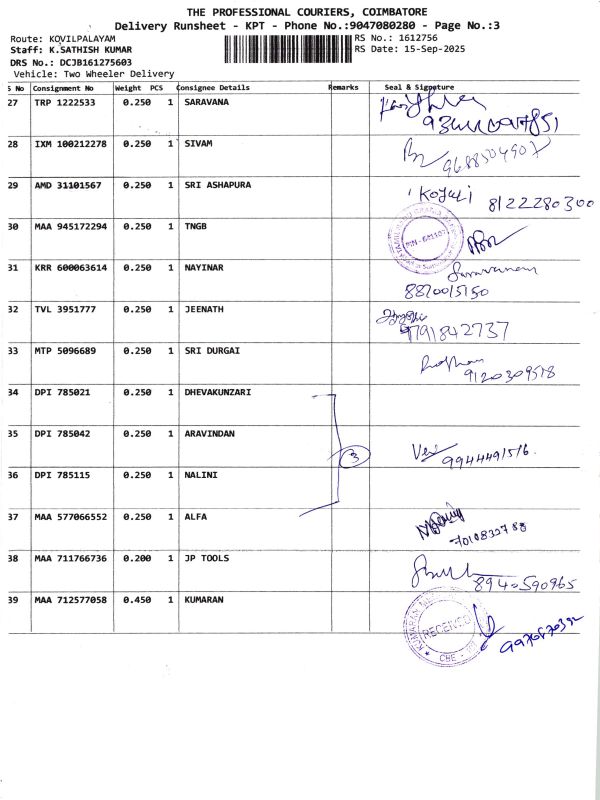 THE PROFESSIONAL COURIERS, COIMBATORE
Delivery Runsheet - KPT - Phone No.:9047080280 - Page No.:3
Route: KOVILPALAYAM
RS No.: 1612756
Staff: K.SATHISH KUMAR
RS Date: 15-Sep-2025
DRS No.: DCJB161275603
Vehicle: Two Wheeler Delivery
S No Consignment No Weight PCS Consignee Details Remarks Seal & Signature
27 TRP 1222533 0.250 1 SARAVANA
28 IXM 100212278 0.250 1 SIVAM
9688504907
29 AMD 31101567 0.250 1 SRI ASHAPURA
8122280300
30 MAA 945172294 0.250 1 TNGB
31 KRR 600063614 0.250 1 NAYINAR
8870015150
32 TVL 3951777 0.250 1 JEENATH
9791842737
33 MTP 5096689 0.250 1 SRI DURGAI
9120309518
34 DPI 785021 0.250 1 DHEVAKUNZARI
35 DPI 785042 0.250 1 ARAVINDAN
3
9944491516
36 DPI 785115 0.250 1 NALINI
37 MAA 577066552 0.250 1 ALFA
38 MAA 711766736 0.200 1 JP TOOLS
8940590965
39 MAA 712577058 0.450 1 KUMARAN
RECEIVED
CBE